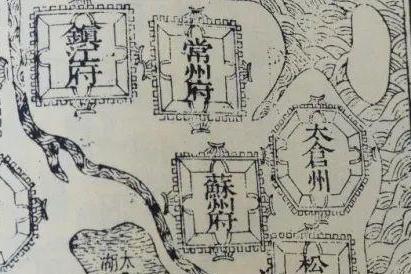 鎮江府
常州府
太倉州
蘇州府
松
太湖